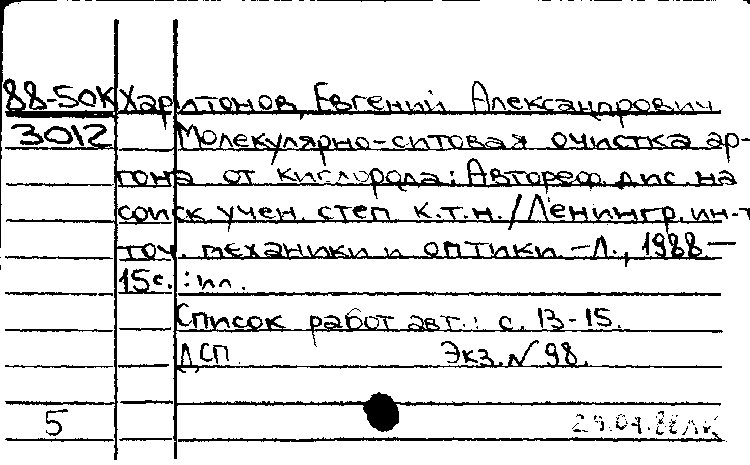 88-50К Харитонов, Евгений Александрович
3012 Молекулярно-ситовая очистка ар-
гона от кислорода: Автореф. дис. на
соиск. учен. степ. к.т.н. / Ленингр. ин-т
точ. механики и оптики. - Л., 1988. -
15с. : ил.
Список работ авт.: с. 13-15.
ДСП. Экз. № 98.
5